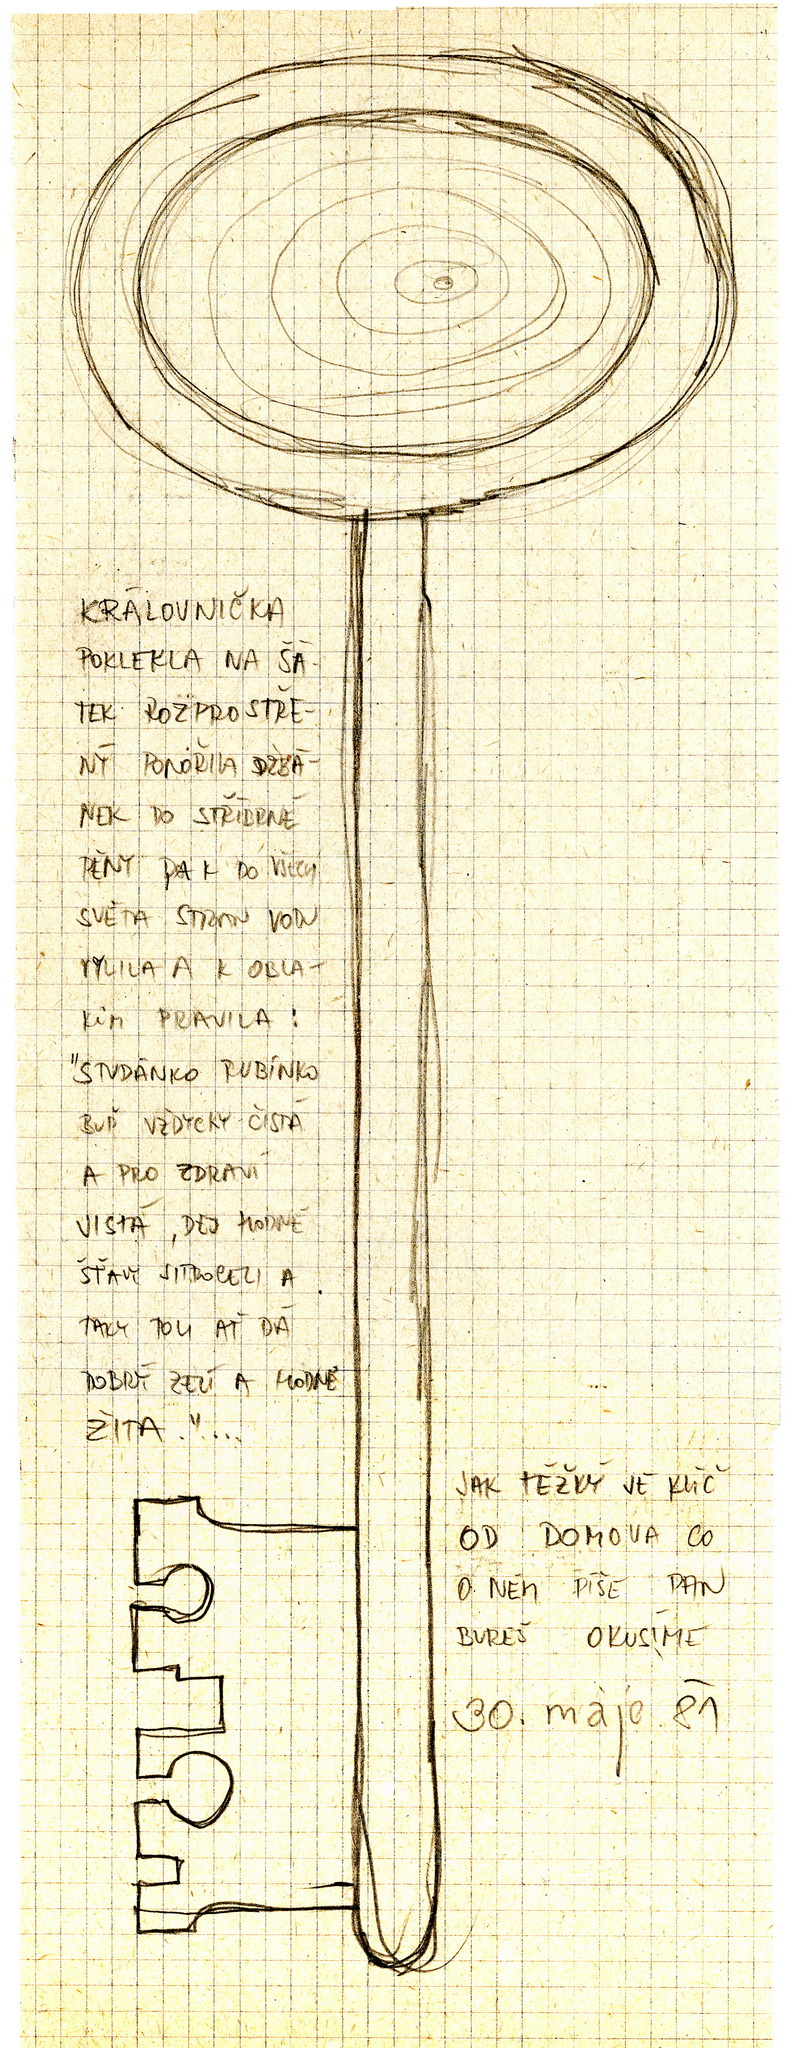 KRÁLOVNIČKA
POKLEKLA NA ŠÁ-
TEK ROZPROSTŘE-
NÝ PONOŘILA DŽBÁ-
NEK DO STŘÍBRNÉ
PĚNY PAK DO VŠECH
SVĚTA STRAN VODU
VYLILA A K OBLA-
KŮM PRAVILA:
"STUDÁNKO RUBÍNKO
BUĎ VŽDYCKY ČISTÁ
A PRO ZDRAVÍ
JISTÁ, DEJ HODNĚ
ŠŤÁVY JITROCELI A
TAKY POLI AŤ DÁ
DOBRÝ ZELÍ A HODNĚ
ŽITA."....
JAK TĚŽKÝ JE KLÍČ
OD DOMOVA CO
O NĚM PÍŠE PAN
BUREŠ OKUSÍME
30. máje 81